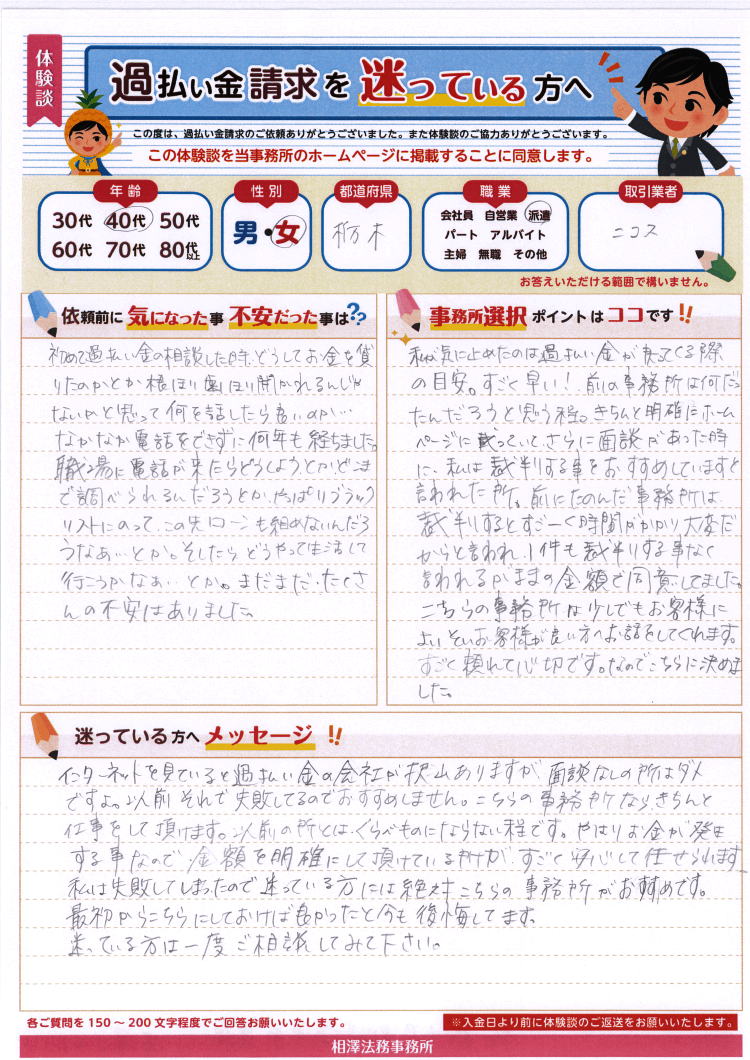 体験談
過払い金請求を迷っている方へ
この度は、過払い金請求のご依頼ありがとうございました。また体験談のご協力ありがとうございます。
この体験談を当事務所のホームページに掲載することに同意します。
年齢
30代 40代 50代
60代 70代 80代以上
性別
男・女
都道府県
栃木
職業
会社員 自営業 派遣
パート アルバイト
主婦 無職 その他
取引業者
ニコス
お答えいただける範囲で構いません。
依頼前に気になった事 不安だった事は??
初めて過払い金の相談した時、どうしてお金を借
りたのかとか根ほり歯ほり聞かれるんじゃ
ないかと思って何を話したら良いのか…
なかなか電話をできずに何年も経ちました。
職場に電話が来たらどうしようとかどこま
で調べられるんだろうとか、やっぱりブラック
リストにのって、この先ローンも組めないんだろ
うなあ…とか。そしたらどうやって生活して
行こうかなぁ…とか。まだまだ、たくさ
んの不安はありました。
事務所選択 ポイントは ココです!!
私が気に止めたのは過払い金が戻ってくる際
の目安。すごく早い！前の事務所は何だっ
たんだろうと思う程。きちんと明確にホーム
ページに載っていて、さらに面談があった時
に、私は裁判する事をおすすめしていますと
言われた所。前にたのんだ事務所は
裁判するとすごーく時間がかかり大変だ
からと言われ、1件も裁判する事なく
言われるがままの金額で同意してました。
こちらの事務所は少しでもお客様に
よいそいお客様が良い方へお話をしてくれます。
すごく頼れて心切です。なのでこちらに決めま
した。
迷っている方へメッセージ!!
インターネットを見ていると過払い金の会社が沢山ありますが、面談なしの所はダメ
ですよ。以前それで失敗してるのでおすすめしません。こちらの事務所なら、きちんと
仕事をして頂けます。以前の所とは、くらべものにならない程です。やはりお金が発生
する事なので金額を明確にして頂けている所が、すごく安心して任せられます
私は失敗してしまったので迷っている方には絶対こちらの事務所がおすすめです。
最初からこちらにしておけば良かったと今も後悔してます。
迷っている方は一度ご相談してみて下さい。
各ご質問を150～200文字程度でご回答お願いいたします。
※入金日より前に体験談のご返送をお願いいたします。
相澤法務事務所